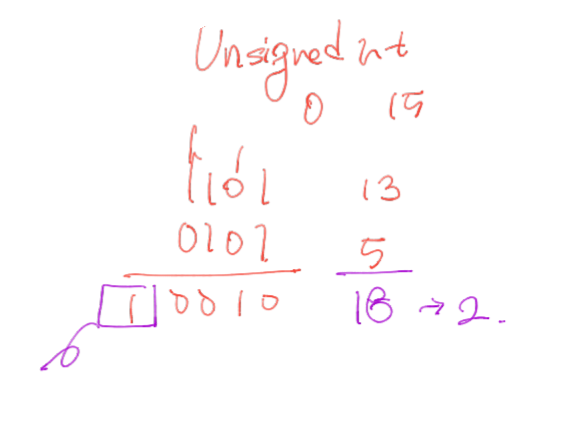 Unsigned int
0 15
1 1
1101 13
0101 5
10010 18 → 2.